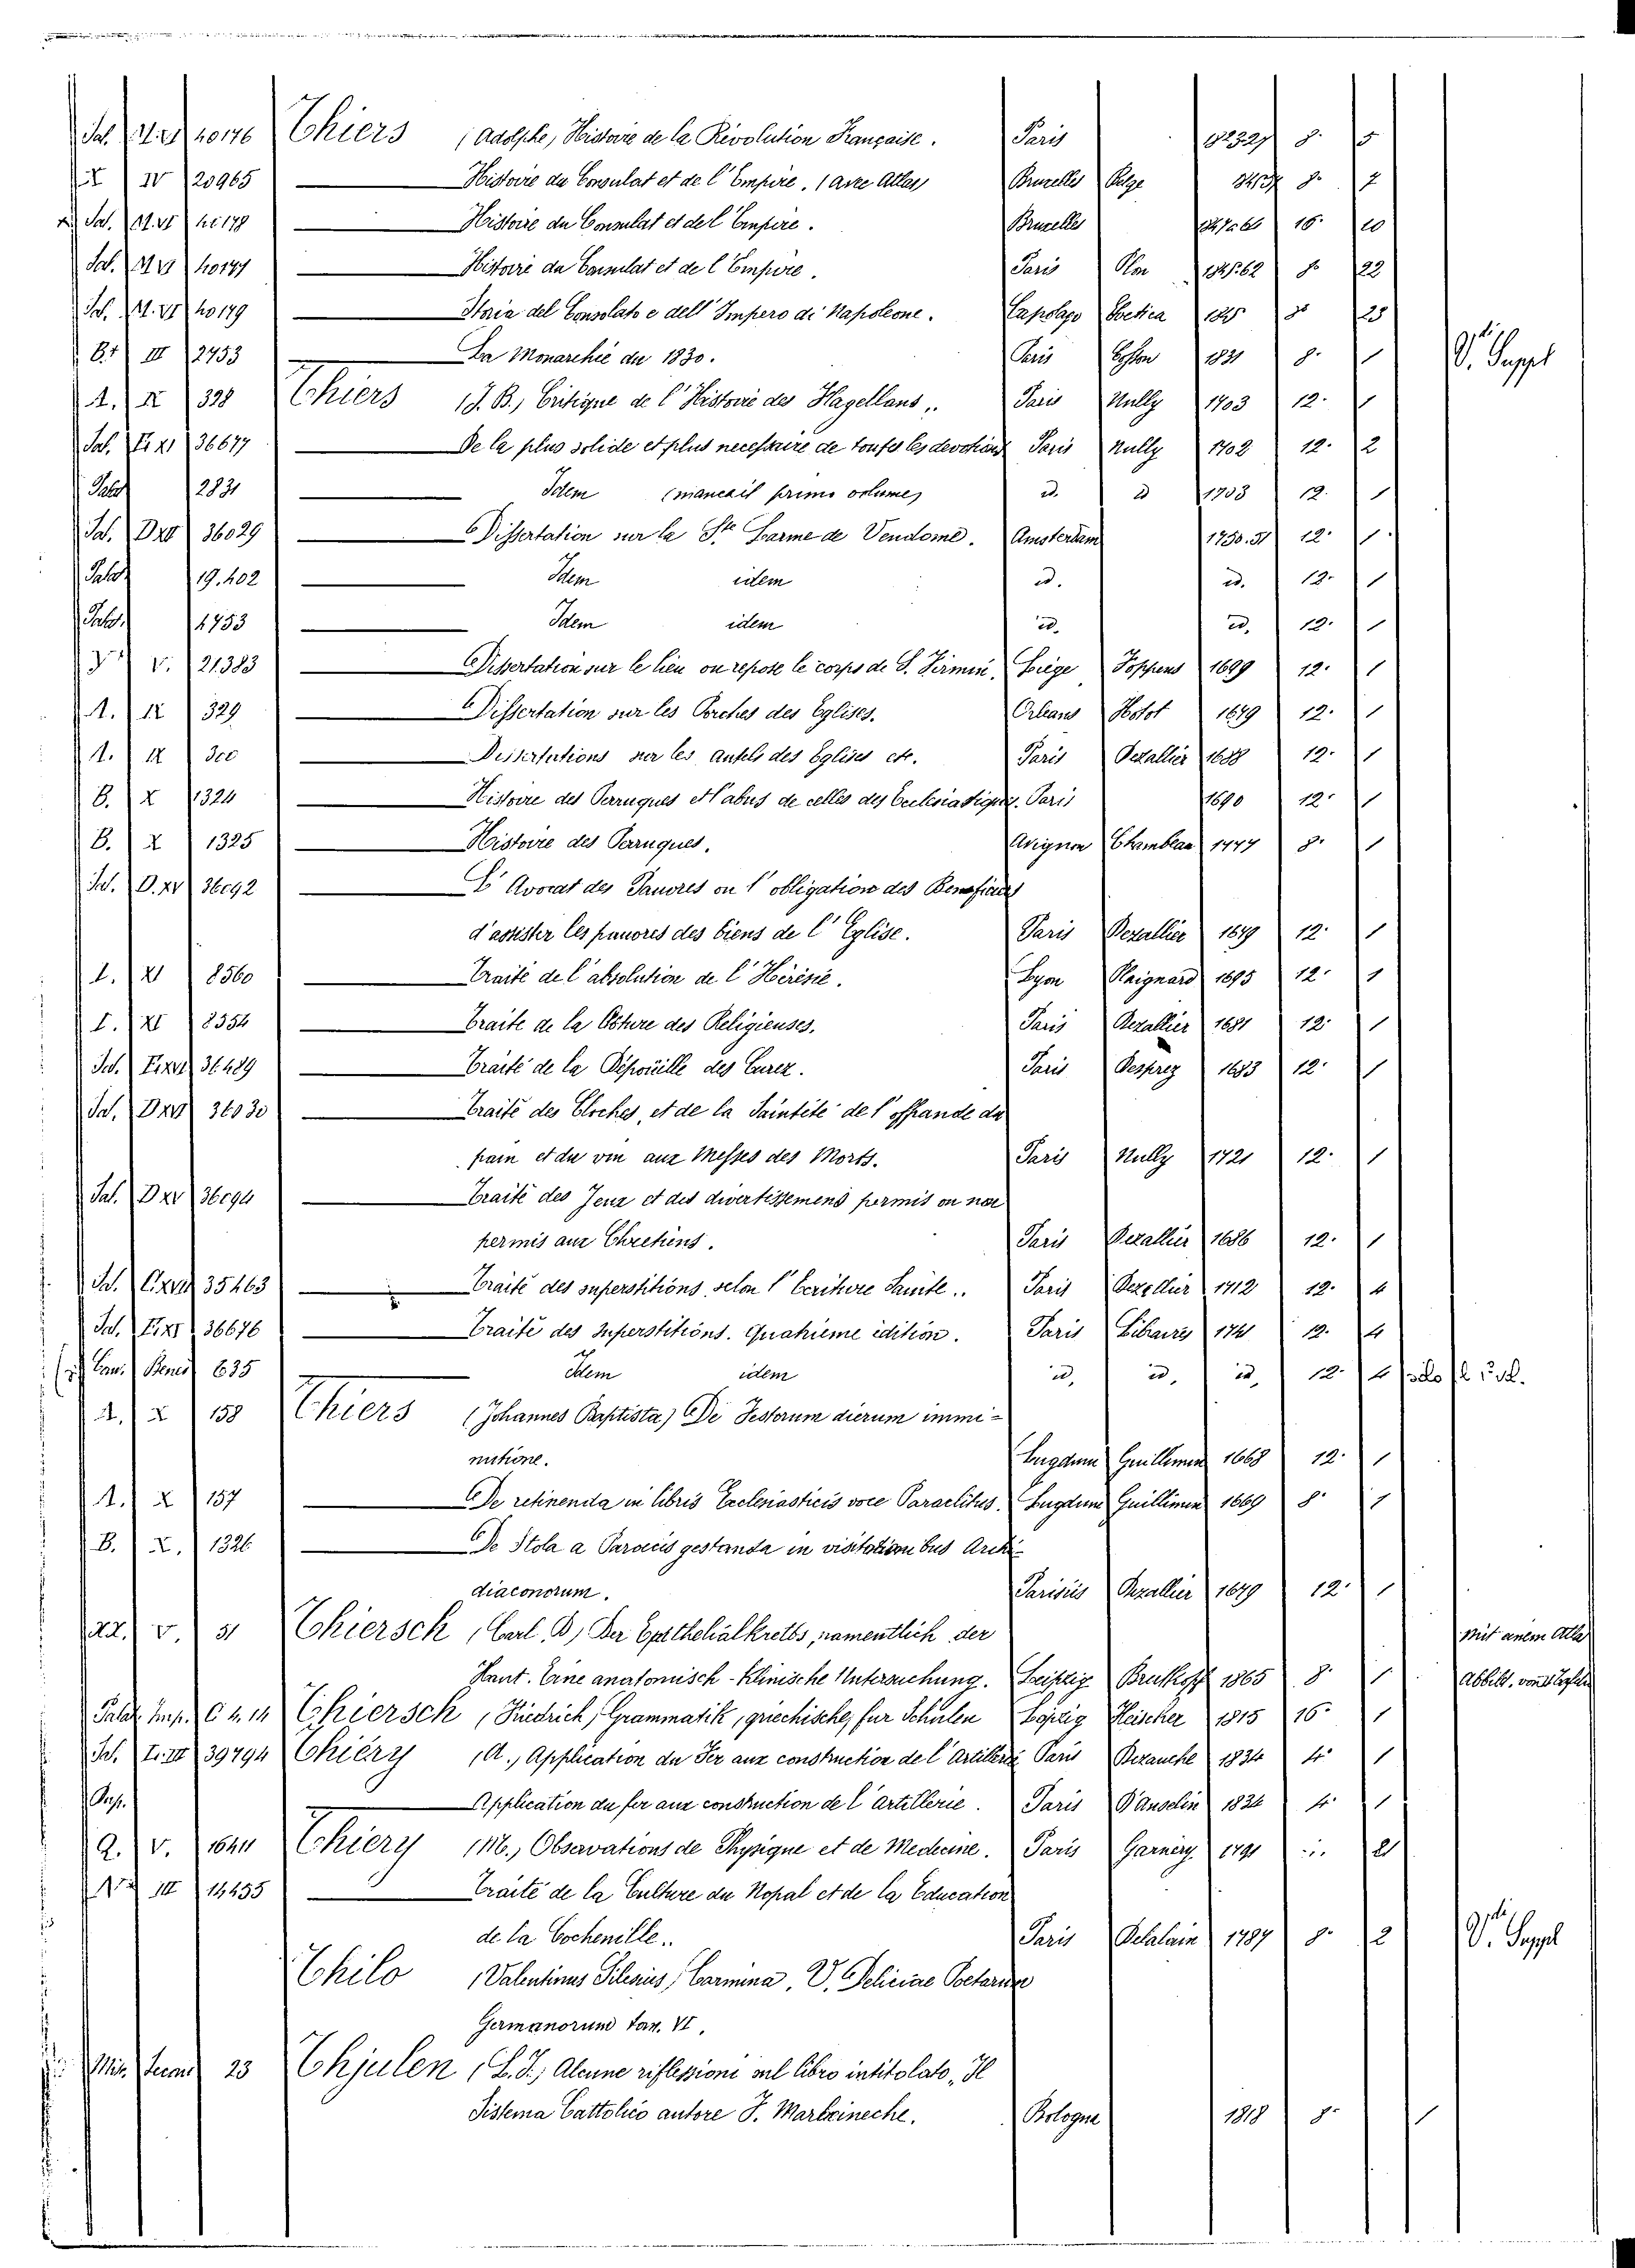 Sal. 40176 Thiers (Adolphe) Histoire de la Révolution Française. Paris 8. 5
IV 20965 Histoire du Consulat et de l'Empire. (avec Atlas) Bruxelles Belge 8. 7
Sal. M.VI Histoire du Consulat et de l'Empire. Bruxelles 16. 20
Sal. M VI 40177 Histoire du Consulat et de l'Empire. Paris Plon 8. 22
Sal. M.VI 40179 Storia del Consolato e dell' Impero di Napoleone. Capolago Elvetica 25
III 2753 La Monarchie de 1830. Paris 1831 8. 1 V. Suppl
A. X 398 Thiers (J. B.) Critique de l'Histoire des Flagellans. Paris Nully 1703 12. 1
Sal. 36677 De la plus solide et plus necessaire de toutes les devotions Paris Nully 1702 12. 2
Palat 2831 Idem (manca il primo volume) id. id 1703 12. 1
Sal. D XV 36029 Dissertation sur la Ste Larme de Vendome. Amsterdam 1750.51 12. 1
Palat 19.402 Idem idem id. id. 12. 1
Palat. 4753 Idem idem id. id. 12. 1
V. 21383 Dissertation sur le lieu ou repose le corps de S. Firmin. Liége Foppens 1699 12. 1
A. IX 329 Dissertation sur les Porches des Eglises. Orleans Hotot 1679 12. 1
A. IX 300 Dissertations sur les Autels des Eglises etc. Paris Dezallier 1688 12. 1
B. X 1324 Histoire des Perruques et l'abus de celles des Ecclesiastiques. Paris 1690 12. 1
B. X 1325 Histoire des Perruques. Avignon Chambeau 1777 8. 1
Sal. D.XV 36092 L'Avocat des Pauvres ou l'obligation des Beneficiers
d'assister les pauvres des biens de l'Eglise. Paris Dezallier 1679 12. 1
L. XI 8560 Traité de l'absolution de l'Hérésie. Lyon Plaignard 1695 12. 1
L. XI 8354 Traite de la Clôture des Religieuses. Paris Dezallier 1681 12. 1
Sal. 36489 Traité de la Dépoüille des Curez. Paris Desprez 1683 12. 1
Sal. D XV 36030 Traité des Cloches, et de la Sainteté de l'offrande du
pain et du vin aux Messes des Morts. Paris Nully 1721 12. 1
Sal. D XV 36094 Traité des Jeux et des divertissemens permis ou non
permis aux Chretiens. Paris Dezallier 1686 12. 1
Sal. 35463 Traité des superstitions selon l'Ecriture Sainte.. Paris Dezallier 1712 12. 4
Sal. 36676 Traité des Superstitions. Quatrieme édition. Paris Libraires 1741 12. 4
635 Idem idem id, id, id, 12. 4
A. X 158 Thiers (Johannes Baptista) De Festorum dierum immi-
nutione. Lugduni Guillimin 1668 12. 1
A. X 157 De retinenda in libris Ecclesiasticis voce Paraclitus. Lugduni Guillimin 1669 8. 1
B. X. 1326 De Stola a Parocis gestanda in visitationibus Archi-
diaconorum. Parisiis Dezallier 1679 12. 1
V. 51 Thiersch (Carl. ) Der Epithelialkrebs, namentlich der Mit einem Atlas
Haut. Eine anatomisch-klinische Untersuchung. Leipzig 1865 8. 1 Abbild. von
Palat. Thiersch (Friedrich) Grammatik, griechische, fur Schulen Leipzig Fleischer 1815 16. 1
Sal. 39794 Thiéry (A.) Application du Fer aux construction de l'Artillerie Paris 1834 4. 1
Application du fer aux construction de l'artillerie. Paris D'Anselin 1834 4. 1
Q. V. 16411 Thiery (M.) Observations de Physique et de Medecine. Paris Garnery 1791 2
III 14455 Traité de la Culture du Nopal et de la Education
de la Cochenille.. Paris Delalain 1787 8. 2 V. Suppl
Thilo (Valentinus Silesius) Carmina. V. Deliciae Poetarum
Germanorum Tom. VI.
23 Thjulen (L. I.) Alcune riflessioni sul libro intitolato "Il
Sistema Cattolico autore F. Marheineche. Bologne 1818 8. 1